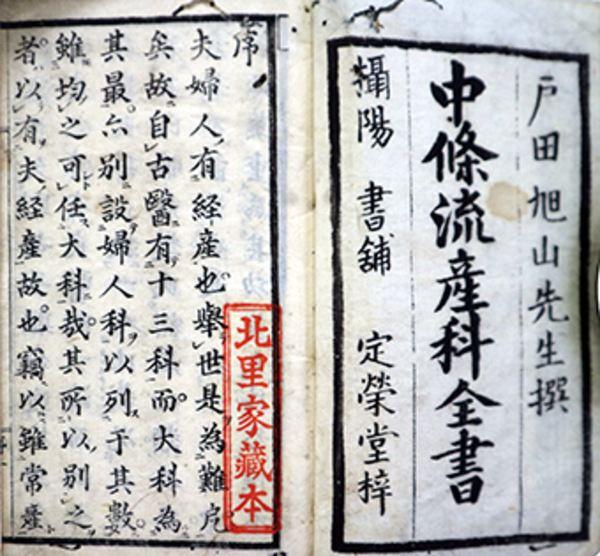 戸田旭山先生撰
中條流產科全書
攝陽 書舖 定榮堂梓
序
夫婦人有經產也舉世是為難戹
矣故自古醫有十三科而大科為
其最亦別設婦人科以列于其數
雖均之可任大科哉其所以別之
者以有夫經產故也竊以雖常產
北里家藏本